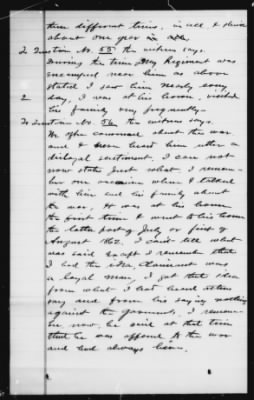 three different times, in all & think
about one year in all.
To Question No. 55 the witness says.
During the time My Regiment was
encamped near him as above
stated I saw him nearly every
day, I was at his house, visited
his family very frequently-
To Question No. 56 the witness says.
We often conversed about the war
and I never heard him utter a
disloyal sentiment, I can not
now state just what. I remem-
ber one occasion when I talked
with him and his family about
the war, It was at his house
the first time I went to his house
the latter part of July or first of
August 1862. I can't tell what
was said except I remember that
I had the idea, claimant was
a loyal man, I got that idea
from what I had heard others
say and from his saying nothing
against the government, I remem-
ber now, he said at that time
that he was opposed to the war
and had always been.